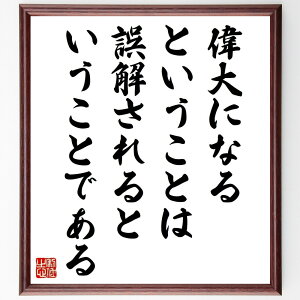 偉大になる
ということは
誤解されると
いうことである